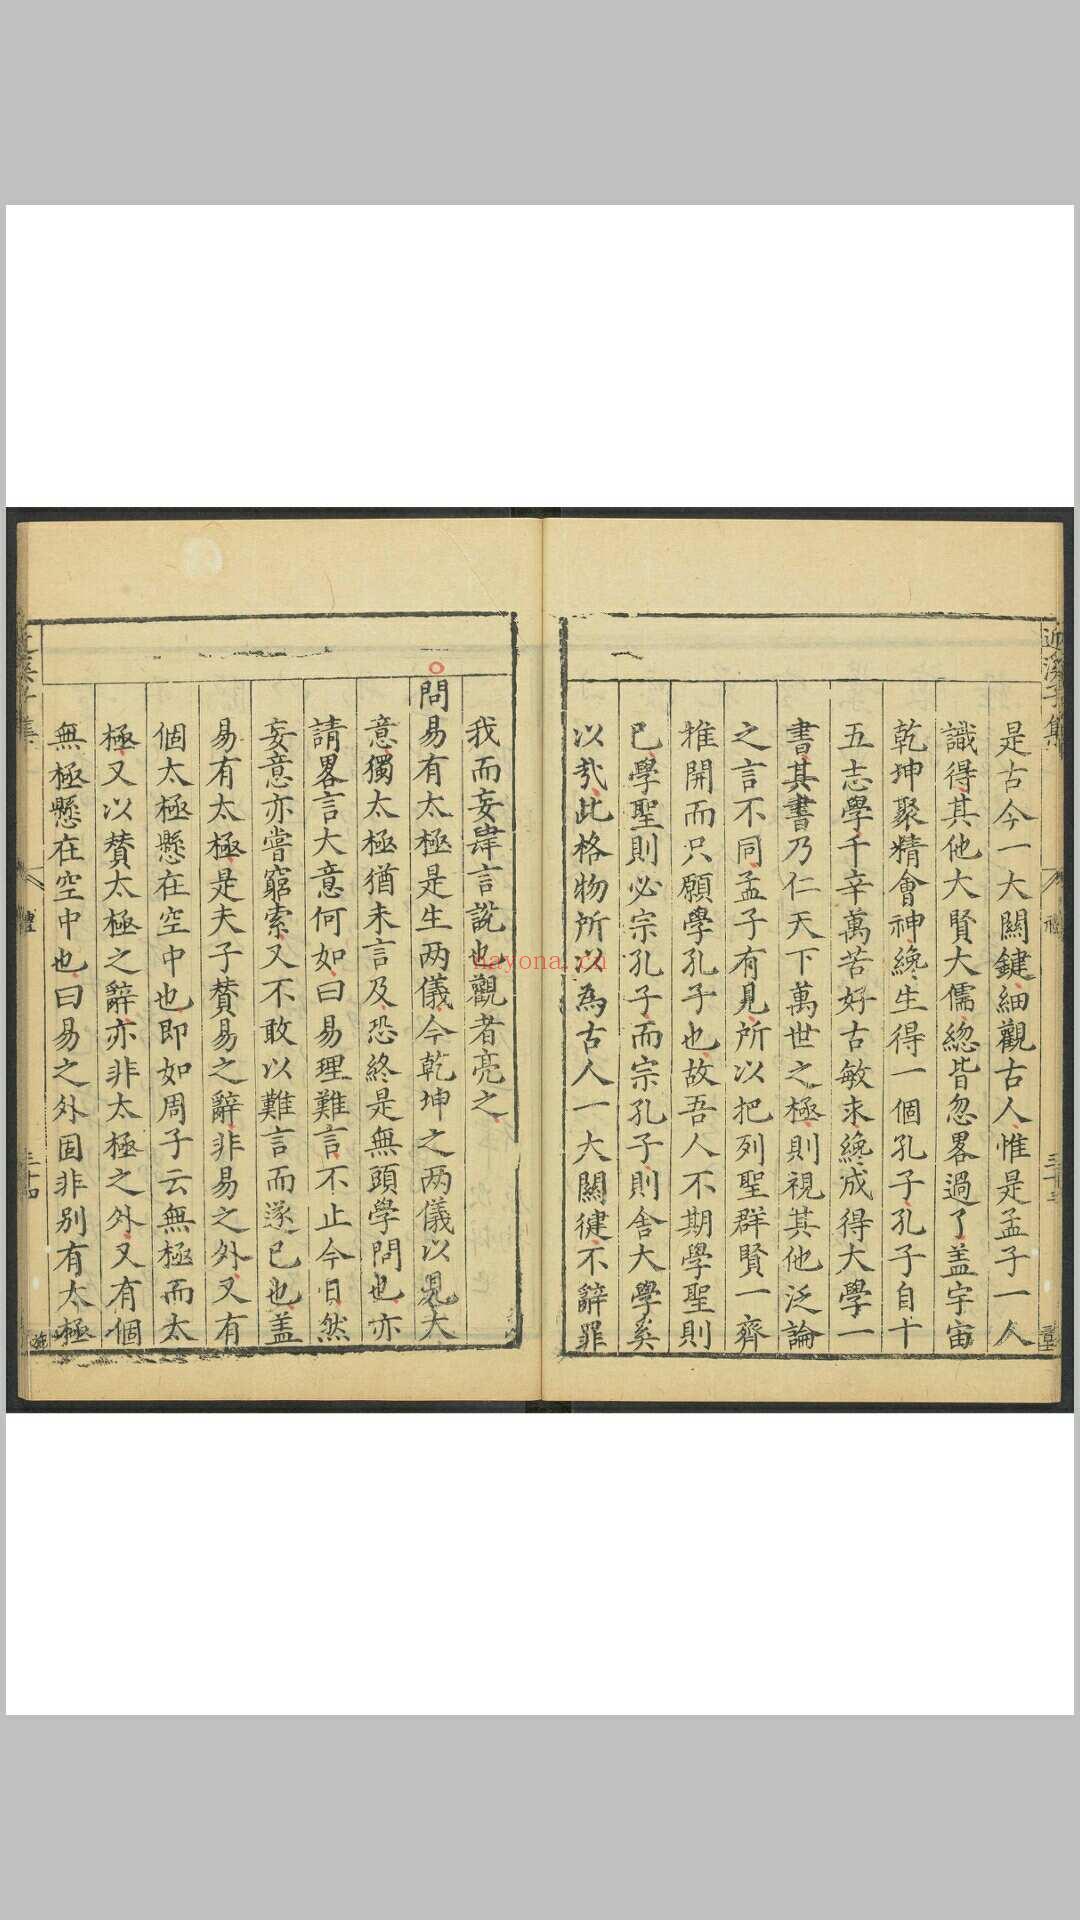 近溪子集
禮
是古今一大關鍵細觀古人惟是孟子一人
識得其他大賢大儒緫皆忽畧過了盖宇宙
乾坤聚精會神纔生得一個孔子孔子自十
五志學千辛萬苦好古敏求纔成得大學一
書其書乃仁天下萬世之極則視其他泛論
之言不同孟子有見所以把列聖群賢一齊
推開而只願學孔子也故吾人不期學聖則
已學聖則必宗孔子而宗孔子則舍大學奚
以哉此格物所以為古人一大關鍵不辭罪
我而妄肆言說也觀者亮之
問易有太極是生两儀今乾坤之两儀以見大
意獨太極猶未言及恐終是無頭學問也亦
請畧言大意何如曰易理難言不止今日然
妄意亦嘗窮索又不敢以難言而遂已也盖
易有太極是夫子賛易之辭非易之外又有
個太極懸在空中也即如周子云無極而太
極又以賛太極之辭亦非太極之外又有個
無極懸在空中也曰易之外固非别有太極
三十四
nayona.cn